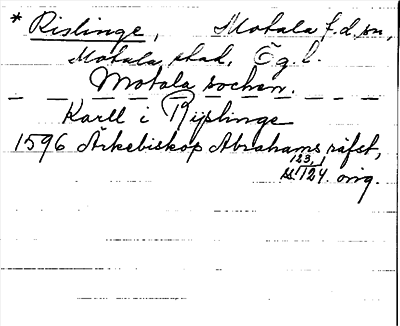 * Rislinge, Motala f.d. sn,
Motala stad, Ög.l.
Motala socken.
Karll i Rijslinge
1596 Ärkebiskop Abrahams räfst,
123,
s. 124. orig.